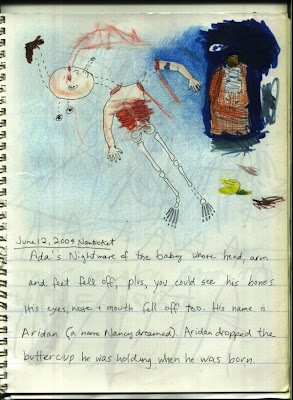 June 12, 2004 Nantucket
Ada's Nightmare of the baby whose head, arm
and feet fell off, plus, you could see his bones.
His eyes, nose + mouth fell off too. His name is
Aridan (a name Nancy dreamed). Aridan dropped the
buttercup he was holding when he was born.